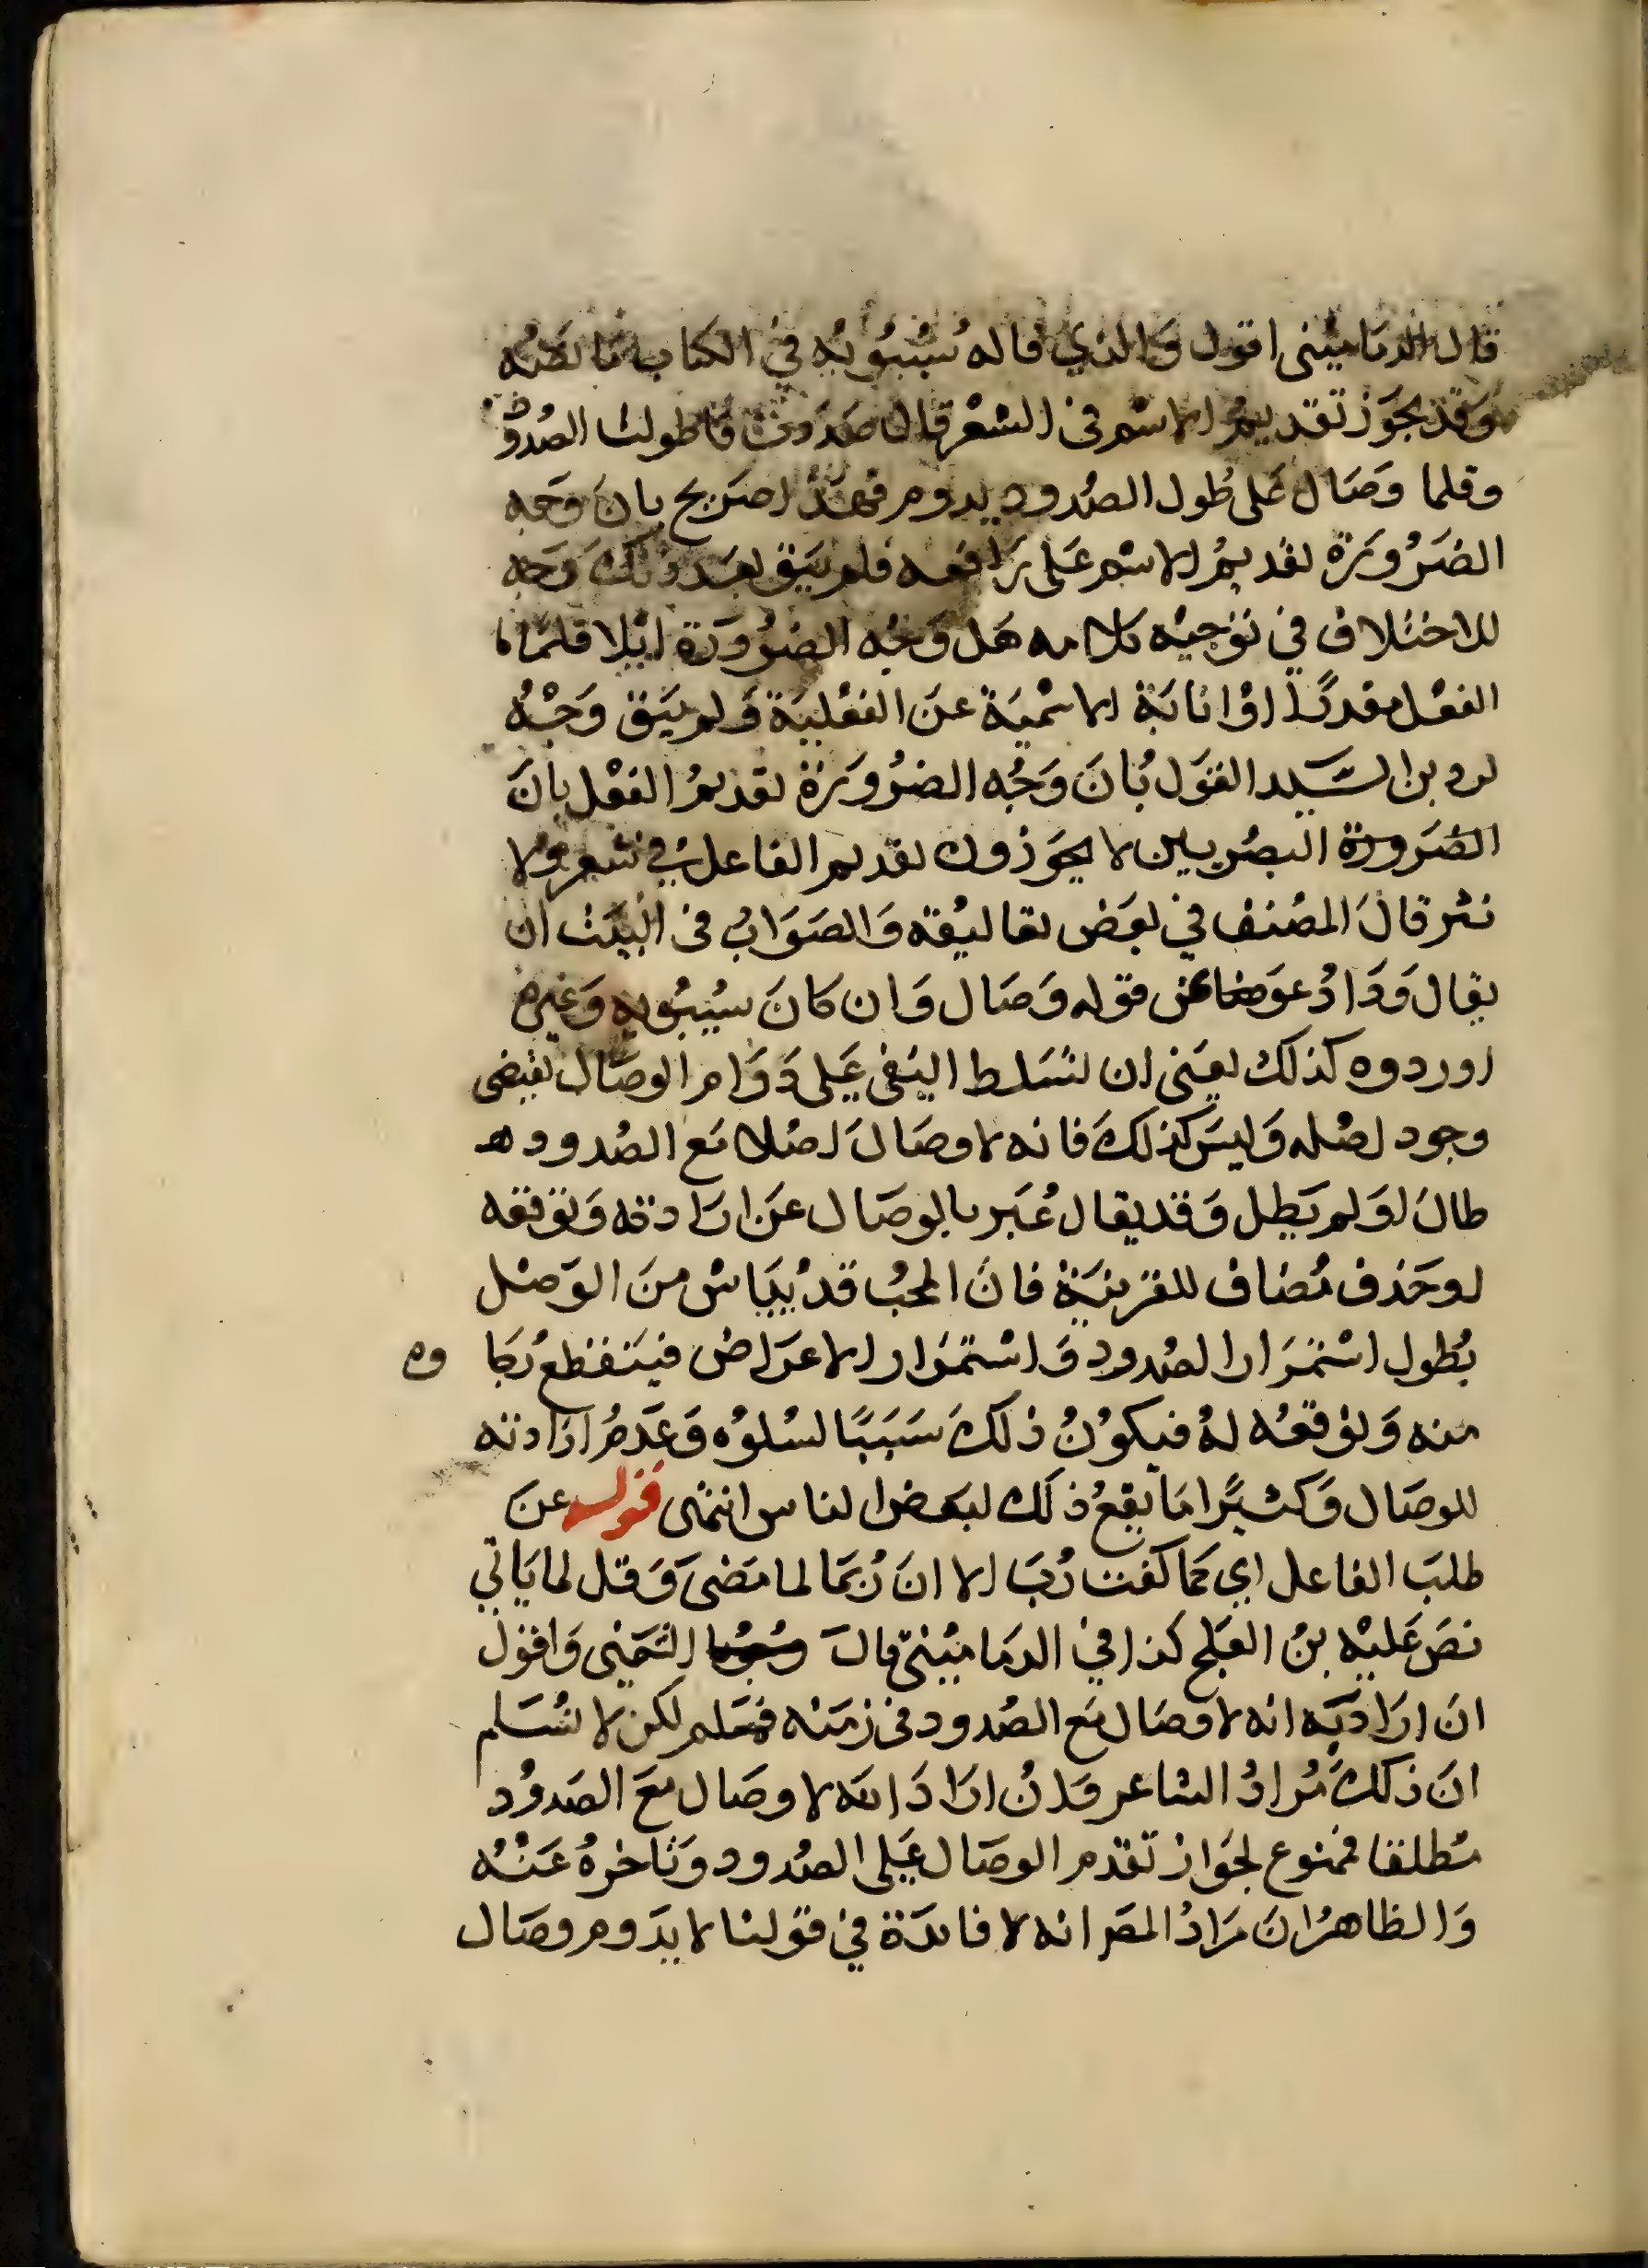 قال الدماميني اقول والذي قاله سيبويه في الكتاب ما نصه
وقد يجوز تقديم الاسم في الشعر قال صددت فاطولت الصدود
وقلما وصال على طول الصدود يدوم فهذا صريح بان وجه
الضرورة تقديم الاسم على رافعه فلم يبق بعد ذلك وجه
للاختلاف في توجيه كلامه هل وجه الضرورة ايلا قلما
الفعل مقدرا او انابة الاسمية عن الفعلية ولم يبق وجه
لرد بن السيد القول بان وجه الضرورة تقديم الفعل بان
الضرورة البصريين لا يجوزون تقديم الفاعل في شعر ولا
نثر قال المصنف في بعض تعاليقه والصواب في البيت ان
يقال وداد عوضا عن قوله وصال وان كان سيبويه وغيره
اوردوه كذلك يعني ان تسلط النفي على دوام الوصال يقتضي
وجود اصله وليس كذلك فانه لا وصال اصلا مع الصدود
طال او لم يطل وقد يقال عبر بالوصال عن ارادته وتوقعه
او حذف مضاف للقرينة فان المحب قد ييياس من الوصل
بطول استمرار الصدود واستمرار الاعراض فيتقطع رجا وه
منه وتوقعه له فيكون ذلك سببا لسلوه وعدم ارادته
للوصال وكثيرا ما يقع ذلك لبعض الناس انتهى قوله عن
طلب الفاعل اي كما كفت رب الا ان ربما لما مضى وقل لما ياتي
نص عليه بن العلج كذا في الدماميني قال الشمني واقول
ان اراد به انه لا وصال مع الصدود في زمنه فمسلم لكن لا نسلم
ان ذلك مراد الشاعر وان اراد انه لا وصال مع الصدود
مطلقا فممنوع لجواز تقدم الوصال على الصدود وتاخره عنه
والظاهر ان مراد المصر انه لا فائدة في قولنا لا يدوم وصال